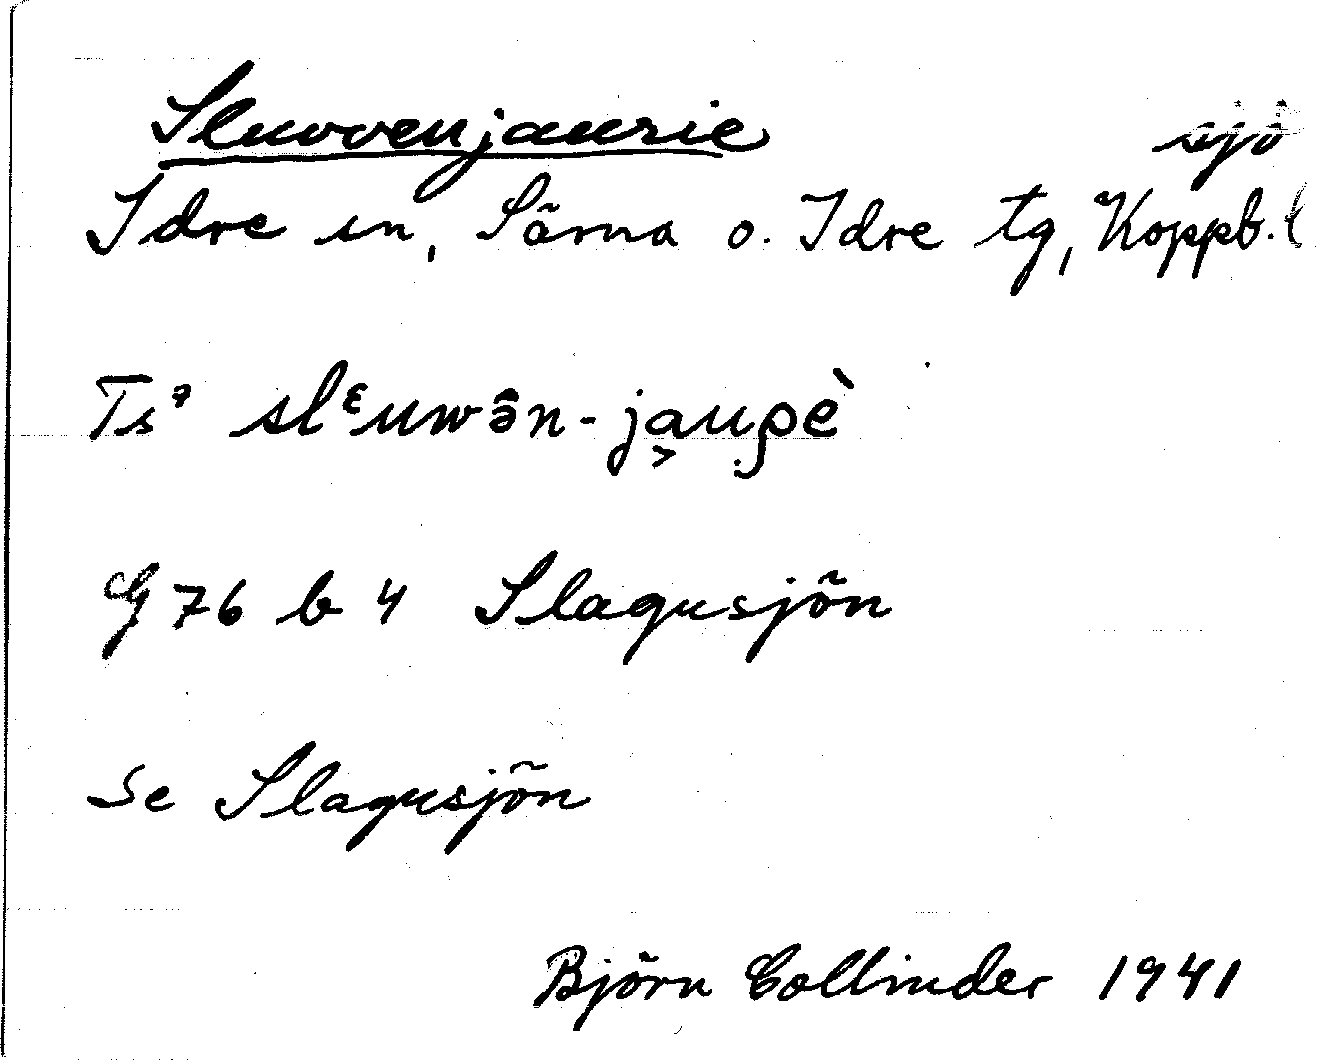 Sluvvenjaurie sjö
Idre sn, Särna o. Idre tg, Koppb. l
Ts⁷ slᵋuwə̂n-ja̬uρ̣è
G 76 b 4 Slagusjön
Se Slagusjön
Björn Collinder 1941